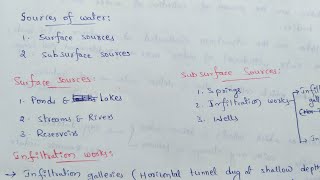 Sources of water:
1. Surface sources
2 Subsurface sources
Surface sources:
1. Ponds & Lakes
2. Streams & Rivers
3. Reservoirs
Subsurface Sources:
1. Springs
2. Infiltration works
3. Wells
Infiltration works:
→ Infiltration galleries (Horizontal tunnel dug at shallow depth